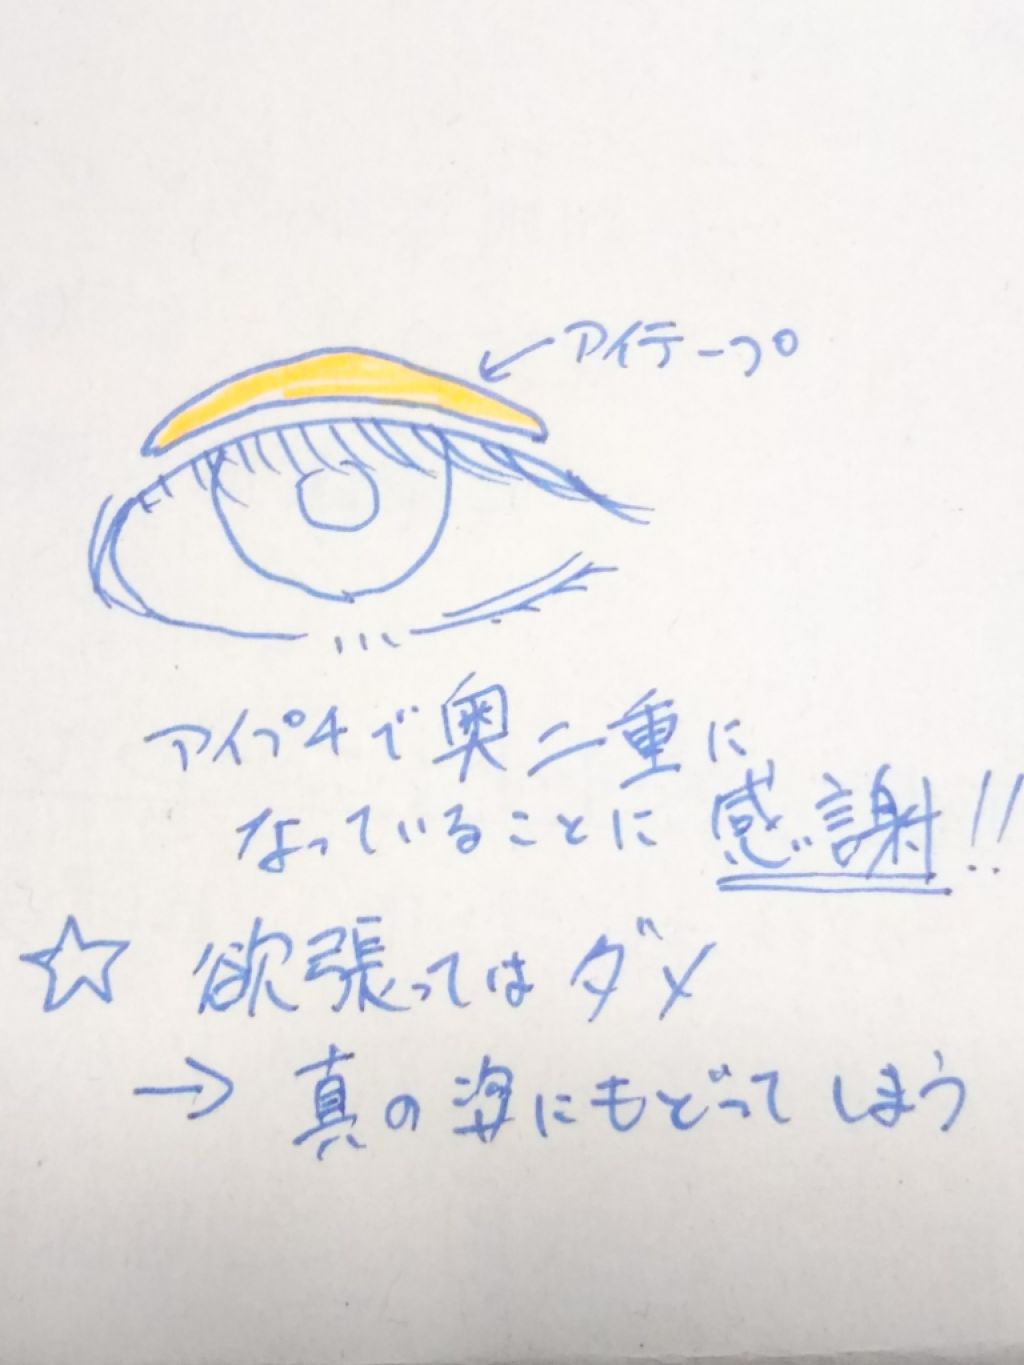 アイテープ
アイプチで奥二重に
なっていることに感謝!!
☆ 欲張ってはダメ
→ 真の姿にもどってしまう